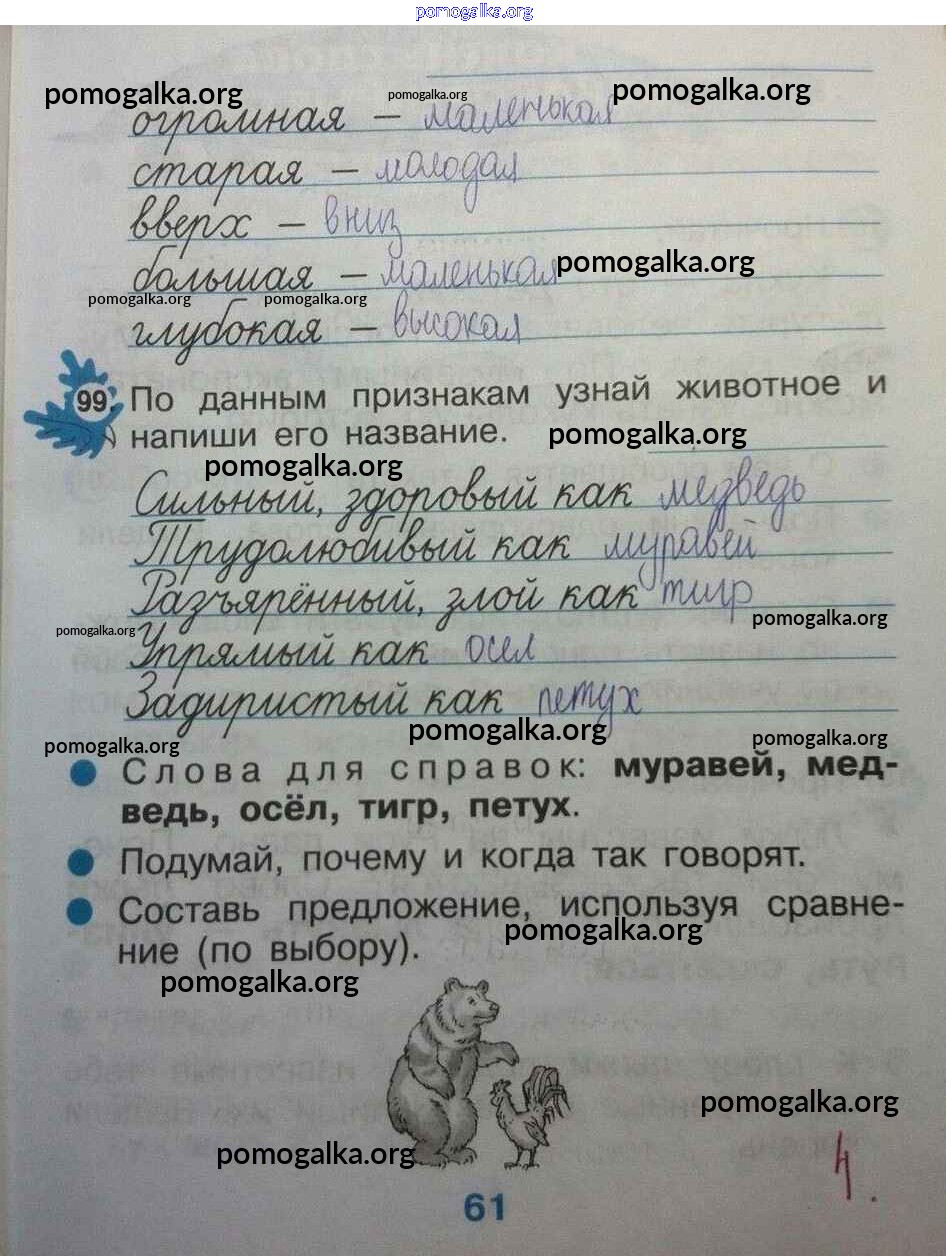 pomogalka.org
pomogalka.org pomogalka.org pomogalka.org
огромная – маленькая
старая – молодая
вверх – вниз
большая – маленькая pomogalka.org
pomogalka.org pomogalka.org
глубокая – высокая
99. По данным признакам узнай животное и
напиши его название. pomogalka.org
pomogalka.org
Сильный, здоровый как медведь
Трудолюбивый как муравей
Разъярённый, злой как тигр
pomogalka.org pomogalka.org
Упрямый как осел
Задиристый как петух
pomogalka.org pomogalka.org pomogalka.org
Слова для справок: муравей, мед-
ведь, осёл, тигр, петух.
Подумай, почему и когда так говорят.
Составь предложение, используя сравне-
pomogalka.org
ние (по выбору).
pomogalka.org
pomogalka.org
pomogalka.org
4.
61